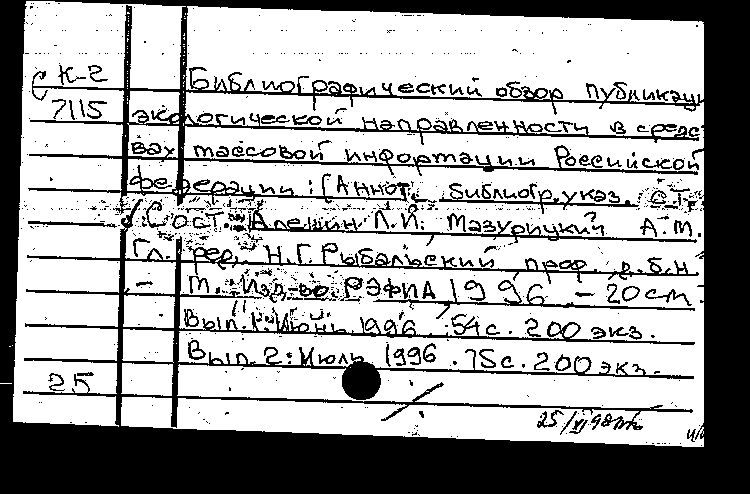 К-2 Библиографический обзор публикаци
7115 экологической направленности в средст
вах массовой информации Российской
федерации: [Аннот. библиогр. указ. ст.
Сост. Алешин Л.И., Мазурицкий А.М.
Гл. ред. Н.Г. Рыбальский, проф. д.б.н
- М.: Изд-во РЭФИА, 1996. - 20 см.
Вып. 1: Июнь 1996. 54 с. 200 экз.
Вып. 2: Июль 1996. 75 с. 200 экз.
25
25/VI 98